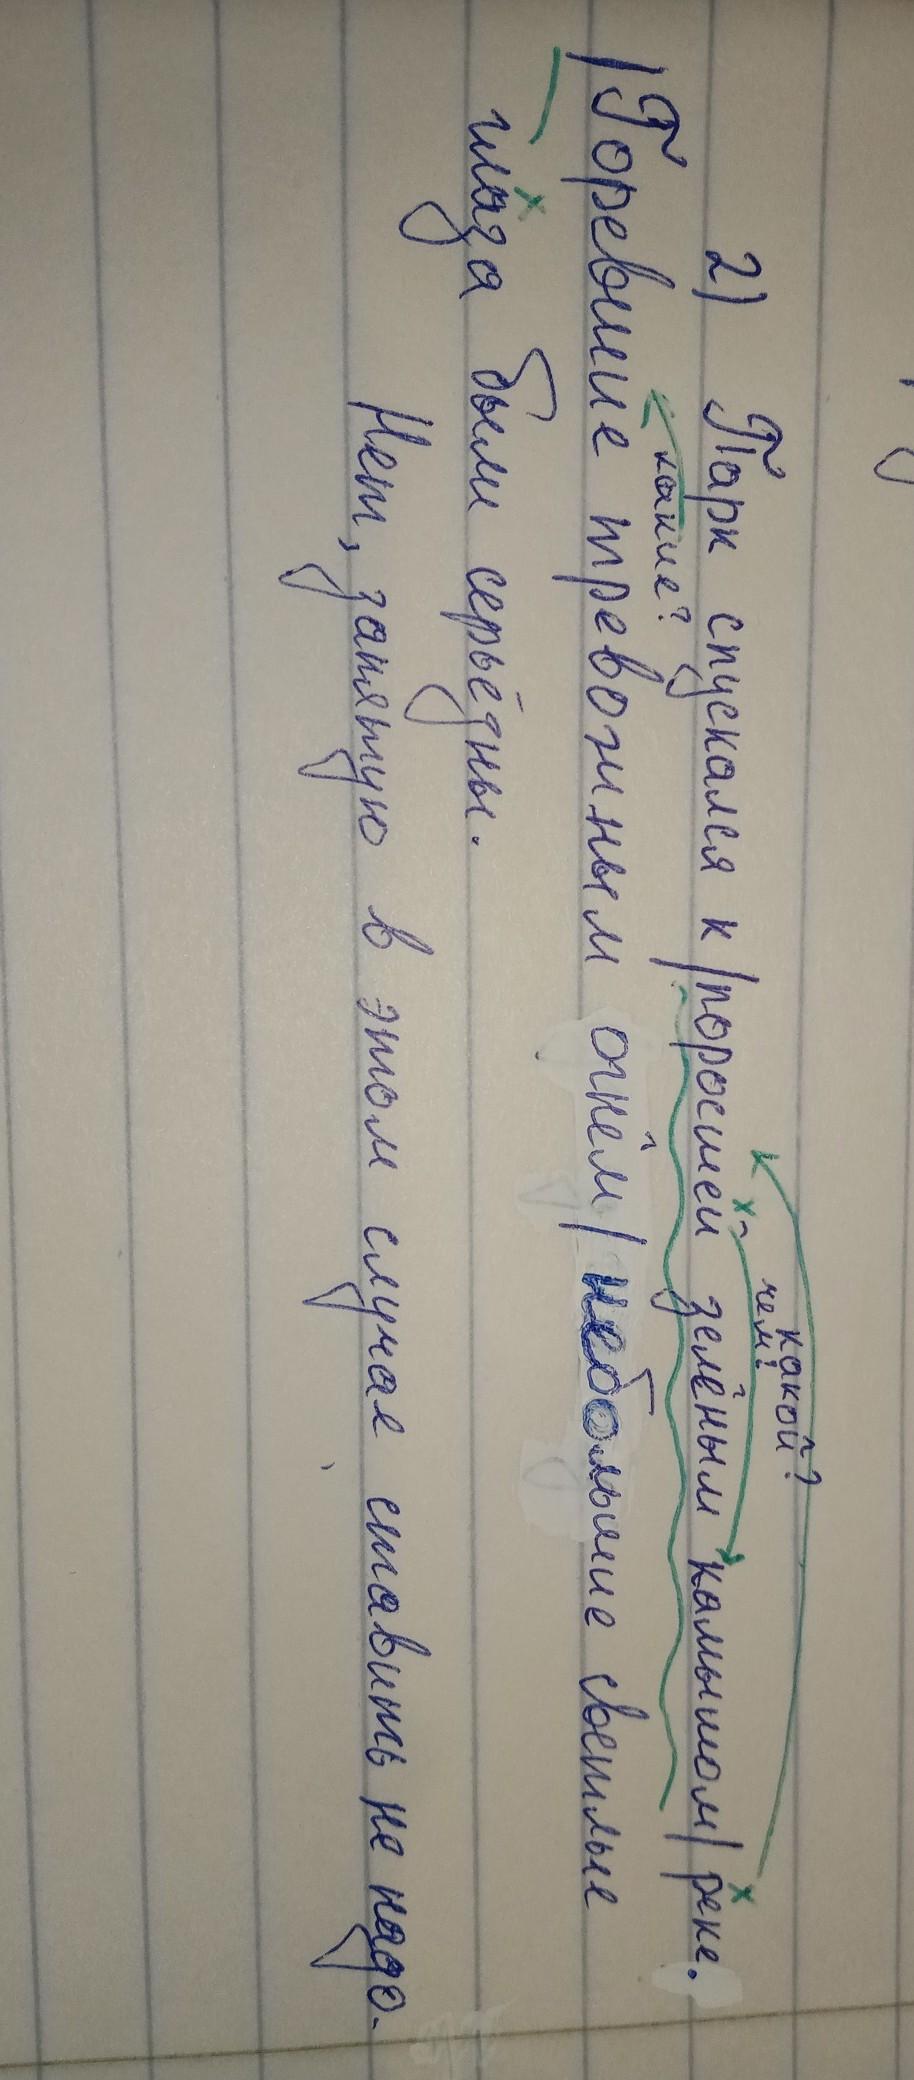 какой?
чем?
2) Парк спускался к |поросшей зелёным камышом| реке.
какие?
|Горевшие тревожным огнём| небольшие светлые
глаза были серьёзны.
Нет, запятую в этом случае ставить не надо.